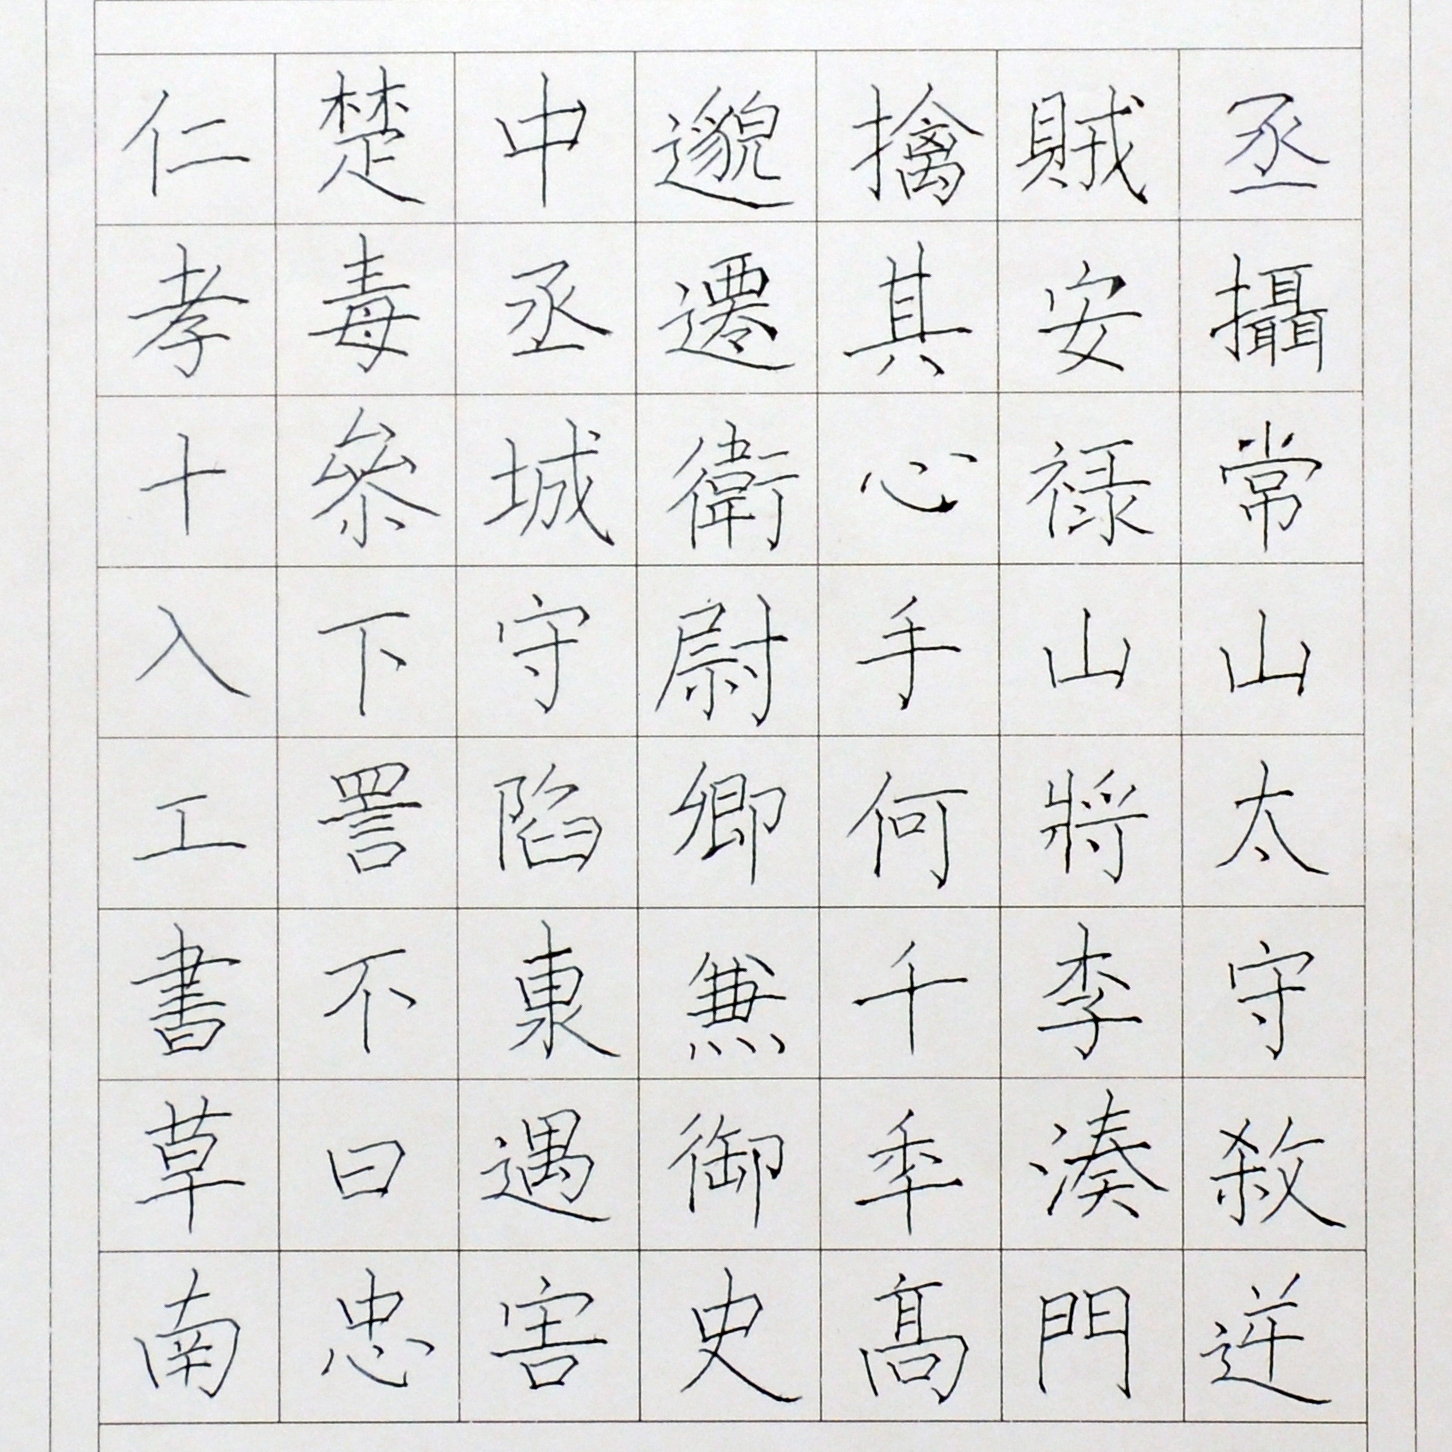 丞攝常山太守敘逆
賊安祿山將李湊門
擒其心手何千年髙
邈遷衛尉卿兼御史
中丞城守陷東遇害
楚毒叅下詈不曰忠
仁孝十入工書草南